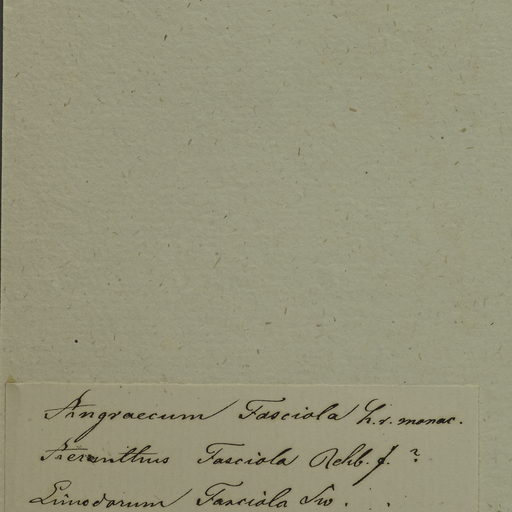 Angraecum Fasciola h. r. monac.
Aeranthus Fasciola Rchb. f. ?
Limodorum Fasciola Sw.